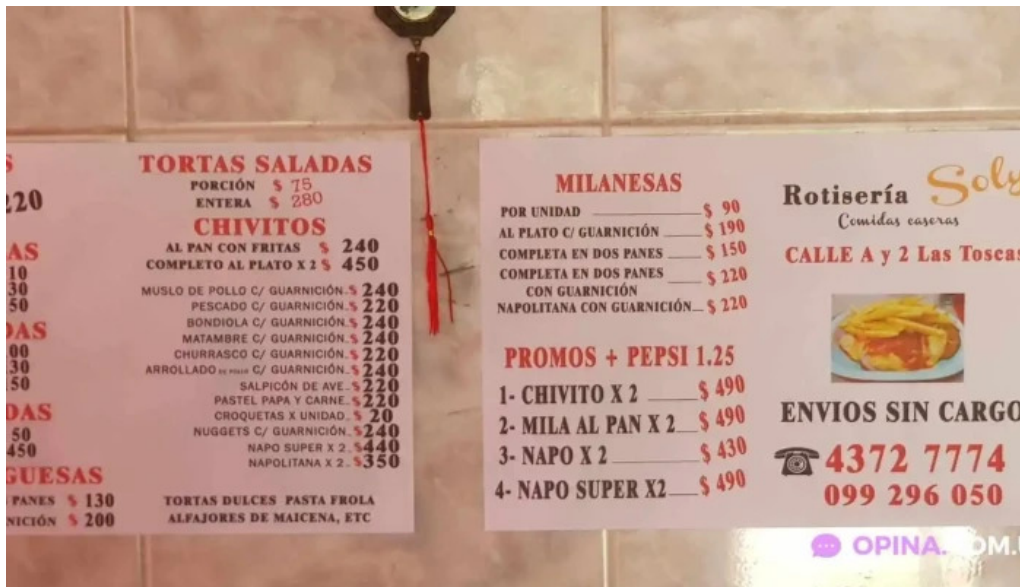 220
AS
10
30
50
DAS
00
30
50
DAS
50
450
GUESAS
PANES $ 130
NICIÓN $ 200
TORTAS SALADAS
PORCIÓN $ 75
ENTERA $ 280
CHIVITOS
AL PAN CON FRITAS $ 240
COMPLETO AL PLATO X 2 $ 450
MUSLO DE POLLO C/ GUARNICIÓN. $ 240
PESCADO C/ GUARNICIÓN. $ 220
BONDIOLA C/ GUARNICIÓN. $ 240
MATAMBRE C/ GUARNICIÓN. $ 240
CHURRASCO C/ GUARNICIÓN. $ 220
ARROLLADO DE POLLO C/ GUARNICIÓN. $ 240
SALPICÓN DE AVE. $ 220
PASTEL PAPA Y CARNE. $ 220
CROQUETAS X UNIDAD. $ 20
NUGGETS C/ GUARNICIÓN. $ 240
NAPO SUPER X 2. $ 440
NAPOLITANA X 2. $ 350
TORTAS DULCES PASTA FROLA
ALFAJORES DE MAICENA, ETC
MILANESAS
POR UNIDAD $ 90
AL PLATO C/ GUARNICIÓN $ 190
COMPLETA EN DOS PANES $ 150
COMPLETA EN DOS PANES $ 220
CON GUARNICIÓN
NAPOLITANA CON GUARNICIÓN $ 220
PROMOS + PEPSI 1.25
1- CHIVITO X 2 $ 490
2- MILA AL PAN X 2 $ 490
3- NAPO X 2 $ 430
4- NAPO SUPER X2 $ 490
Rotisería Soly
Comidas caseras
CALLE A y 2 Las Toscas
ENVIOS SIN CARGO
4372 7774
099 296 050
OPINA. OM.U